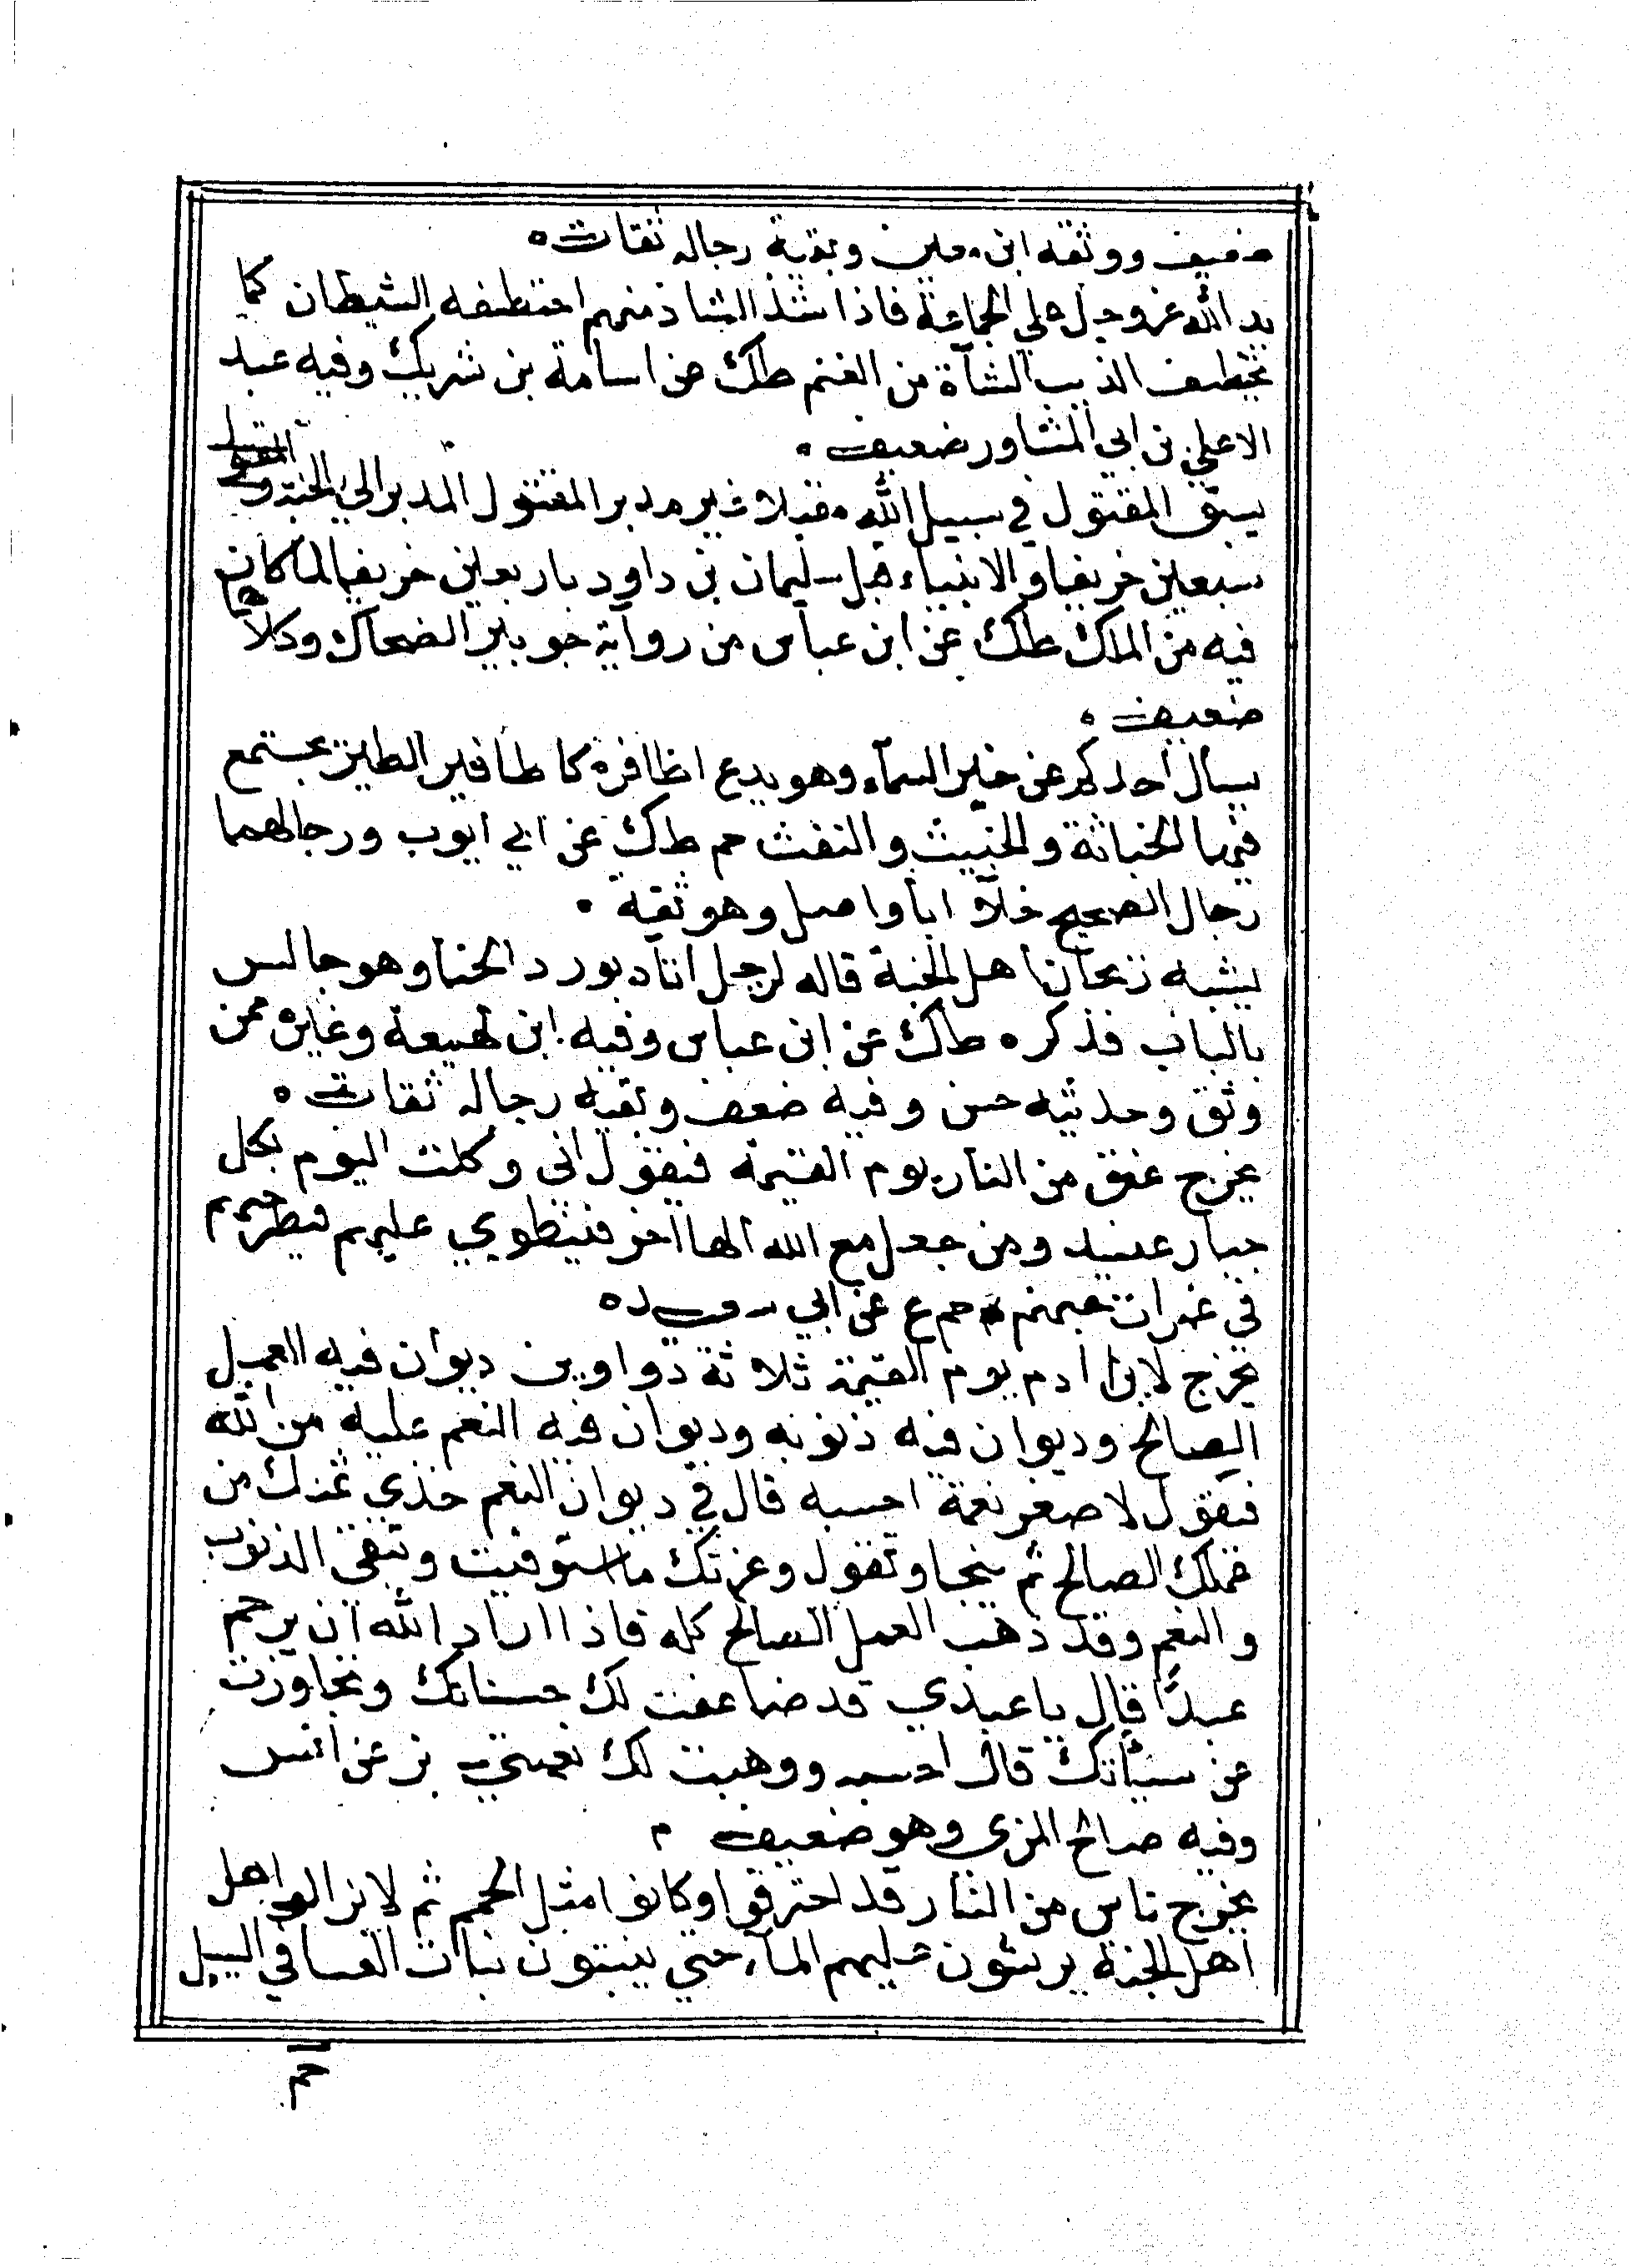 ضعيف ووثقه ابن معين وبقية رجاله ثقات ه
يد الله عز وجل علي الجماعة فاذا شذ الشاذ منهم اختطفه الشيطان كما
يختطف الذيب الشآة من الغنم طك عن اسامة بن شريك وفيه عبد
الاعلي بن ابي المشاور ضعيف ه
يسبق المقتول في سبيل الله مقبلا غير مدبر المقتول المدبر الي الجنة
سبعين خريفا والانبياء قبل سليمان بن داود باربعين خريفا لما كان
فيه من الملك طك عن ابن عباس من رواية جويبر الضحاك وكلاهما
ضعيف ه
يسال احدكم عن خبر السمآء وهو يدع اظافره كاظافير الطير يجتمع
فيها الخباثة والخبيث والتفث حم طك عن ابي ايوب ورجالهما
رجال الصحيح خلآ ابا واصل وهو ثقة ه
يشبه ريحان اهل الجنة قاله لرجل اتاه بورد الحنا وهو جالس
بالباب فذكره طك عن ابن عباس وفيه ابن لهيعة وغيره ممن
وثق وحديثه حسن وفيه ضعف وبقية رجاله ثقات ه
يخرج عنق من النار يوم القيمة فيقول اني وكلت اليوم بكل
جبار عنيد ومن جعل مع الله الها اخر فينطوي عليهم فيطرحهم
في غمرات جهنم حم ع عن ابي سعيد ه
يخرج لابن ادم يوم القيمة ثلاثة دواوين ديوان فيه العمل
الصالح وديوان فيه ذنوبه وديوان فيه النعم عليه من الله
فيقول لاصغر نعمة احسبه قال في ديوان النعم خذي ثمنك من
عملك الصالح ثم تنحا وتقول وعزتك ما استوفيت وتبقى الذنوب
والنعم وقد ذهب العمل الصالح كله فاذا اراد الله ان يرحم
عبدًا قال يا عبدي قد ضاعفت لك حسناتك وتجاوزت
عن سيئاتك قال احسبه ووهبت لك نعمتي بز عن انس
وفيه صالح المزي وهو ضعيف م
يخرج ناس من النار قد احترقوا وكانوا مثل الحمم ثم لايزالو اهل
اهل الجنة يرشون عليهم المآء حتي ينبتون نبات الغسا في السيل
حم